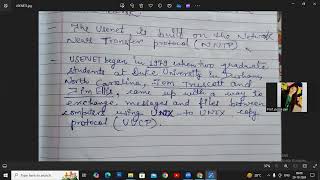 The Usenet is built on the Network
News Transfer protocol (NNTP)
USENET began in 1979 when two graduate
students at Duke University in Durham,
North Carolina, Tom Truscott and
Jim Ellis, came up with a way to
exchange messages and files between
computers using UNIX to UNIX copy
protocol (UUCP).